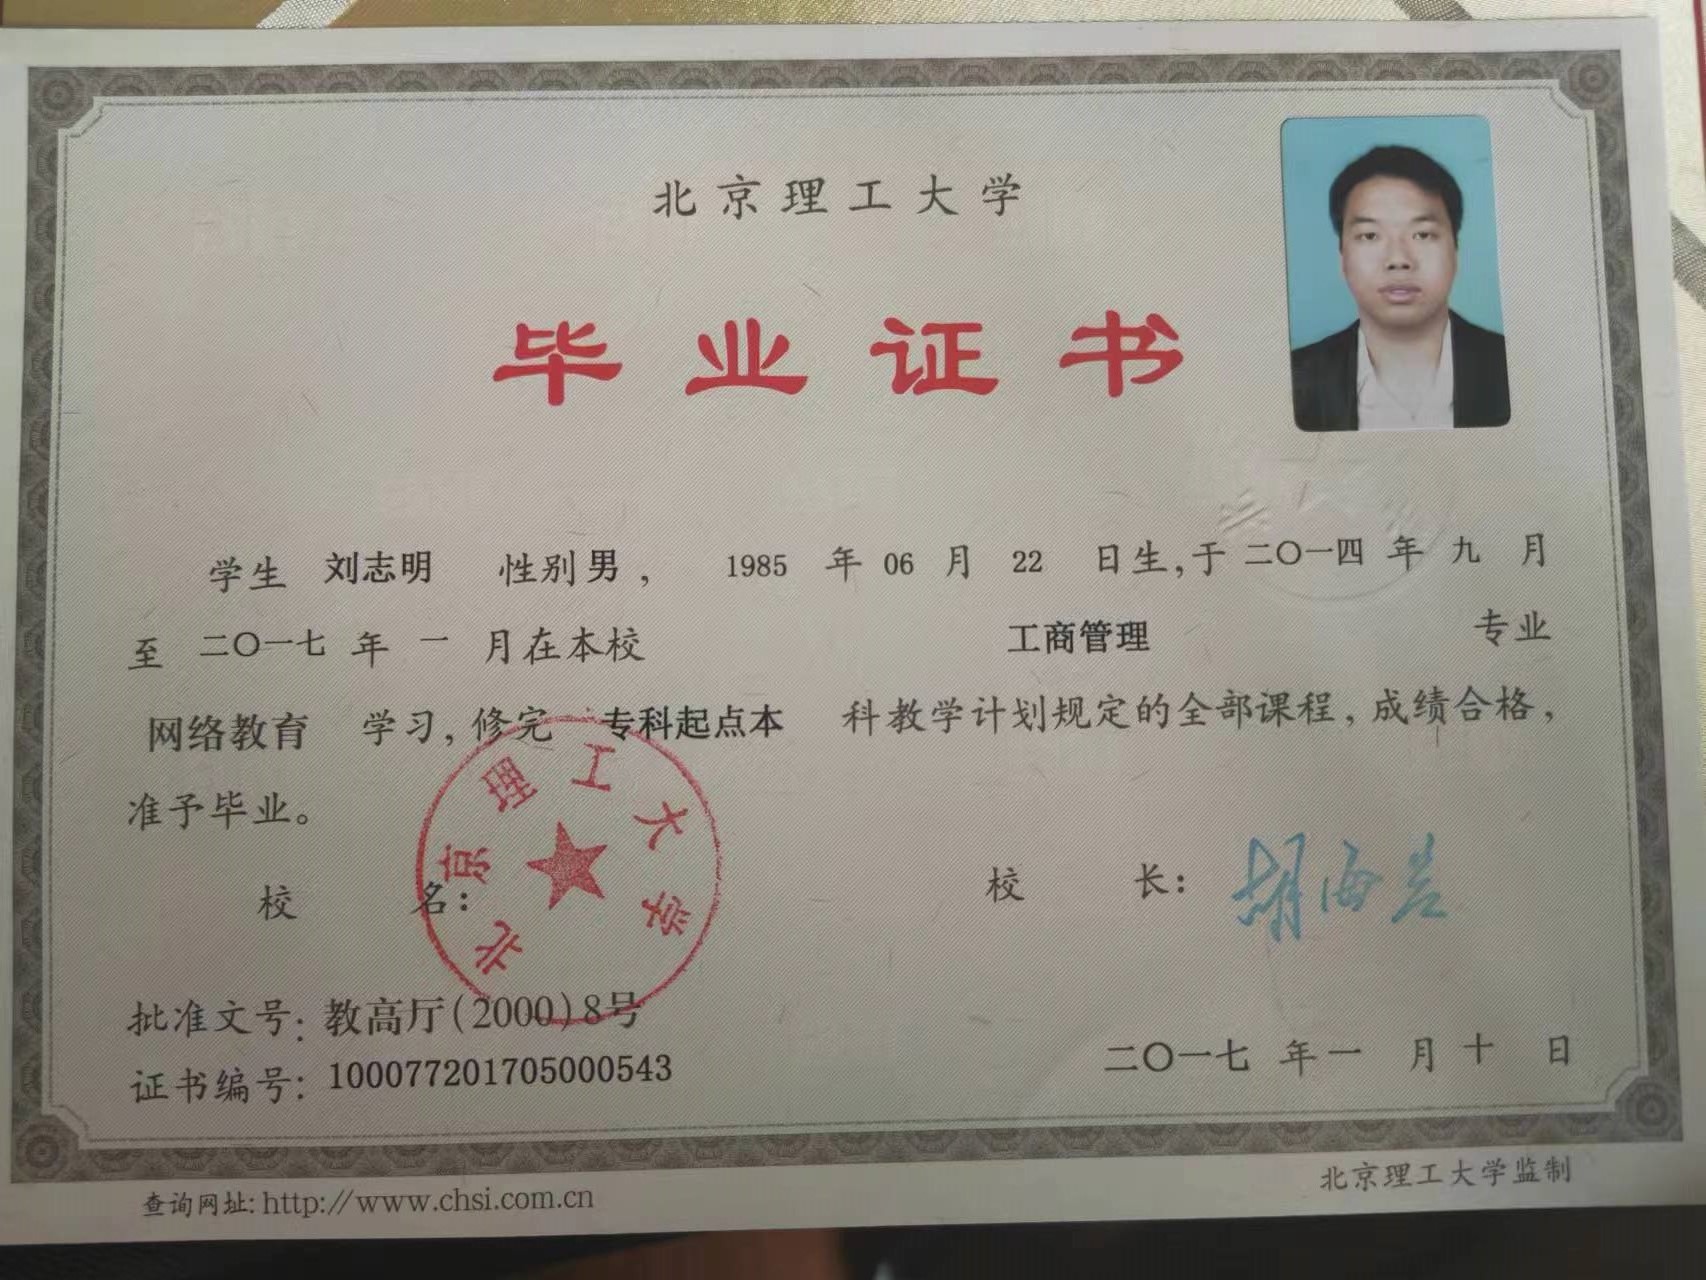 北京理工大学
毕业证书
学生 刘志明 性别 男， 1985 年 06 月 22 日生，于 二〇一四 年 九 月
至 二〇一七 年 一 月在本校 工商管理 专业
网络教育 学习，修完 专科起点本 科教学计划规定的全部课程，成绩合格，
准予毕业。
校 名：
北京理工大学
校 长：胡海岩
批准文号：教高厅(2000)8号
证书编号：100077201705000543
二〇一七 年 一 月 十 日
查询网址：http://www.chsi.com.cn
北京理工大学监制